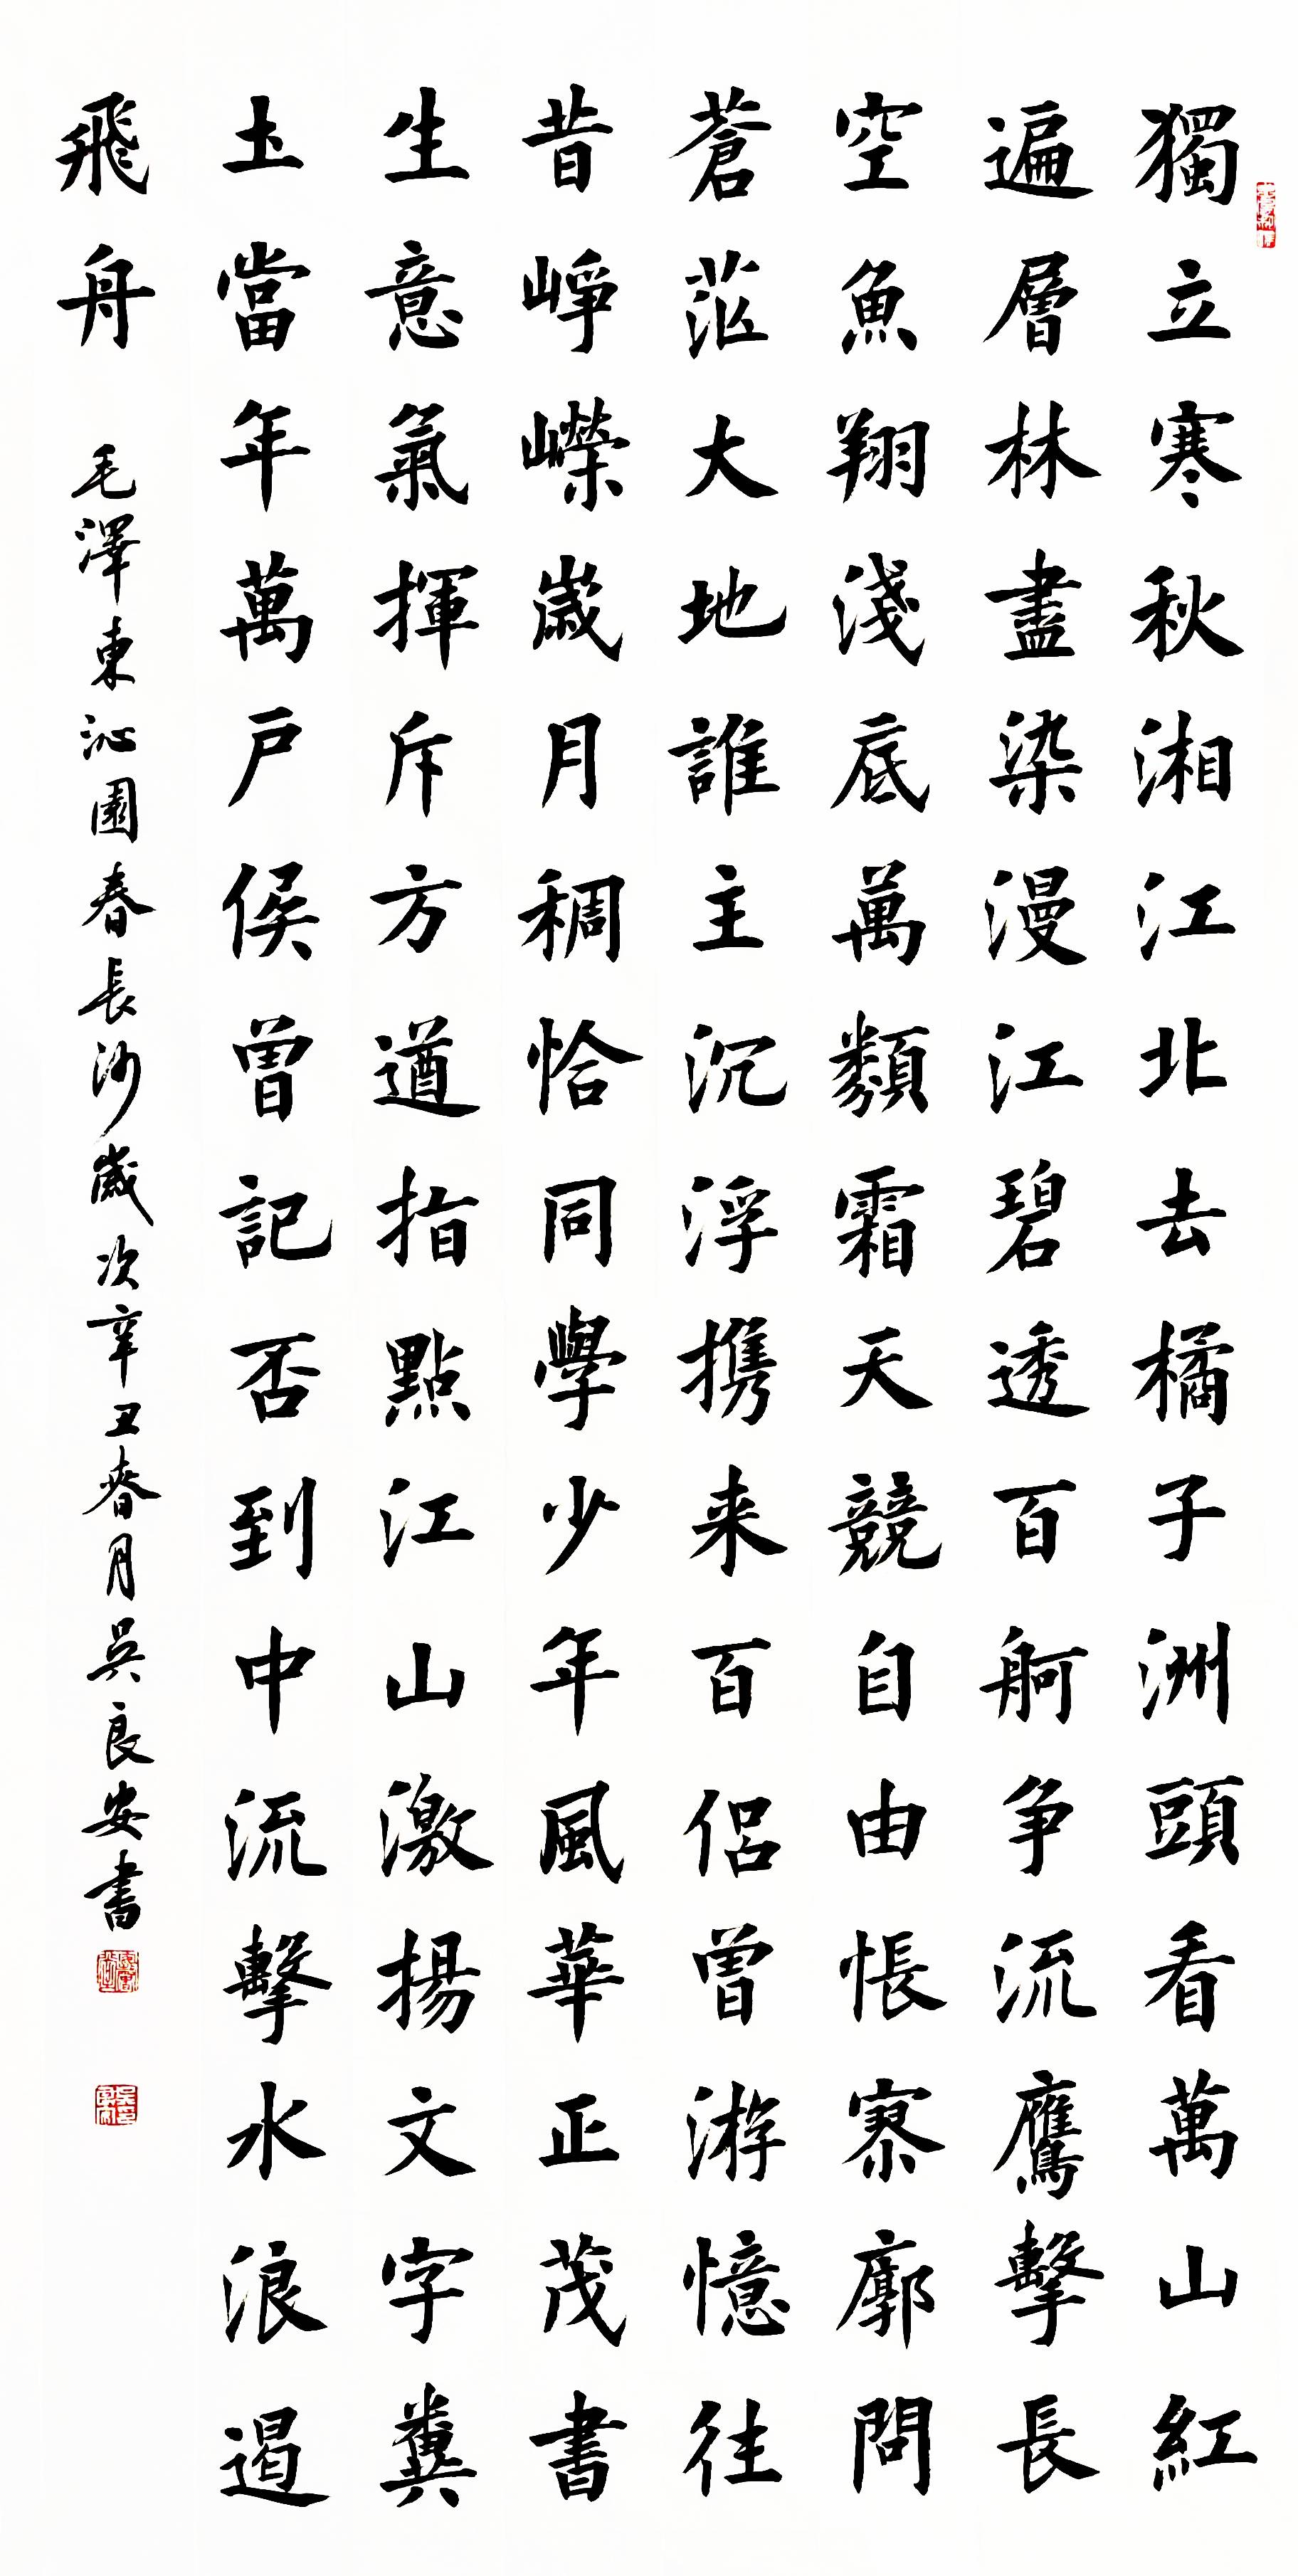 獨立寒秋湘江北去橘子洲頭看萬山紅
遍層林盡染漫江碧透百舸争流鷹擊長
空魚翔淺底萬類霜天競自由悵寥廓問
蒼茫大地誰主沉浮携来百侣曾游憶往
昔崢嶸歲月稠恰同學少年風華正茂書
生意氣揮斥方遒指點江山激揚文字糞
土當年萬户侯曾記否到中流擊水浪遏
飛舟 毛澤東沁園春長沙歲次辛丑春月吳良安書